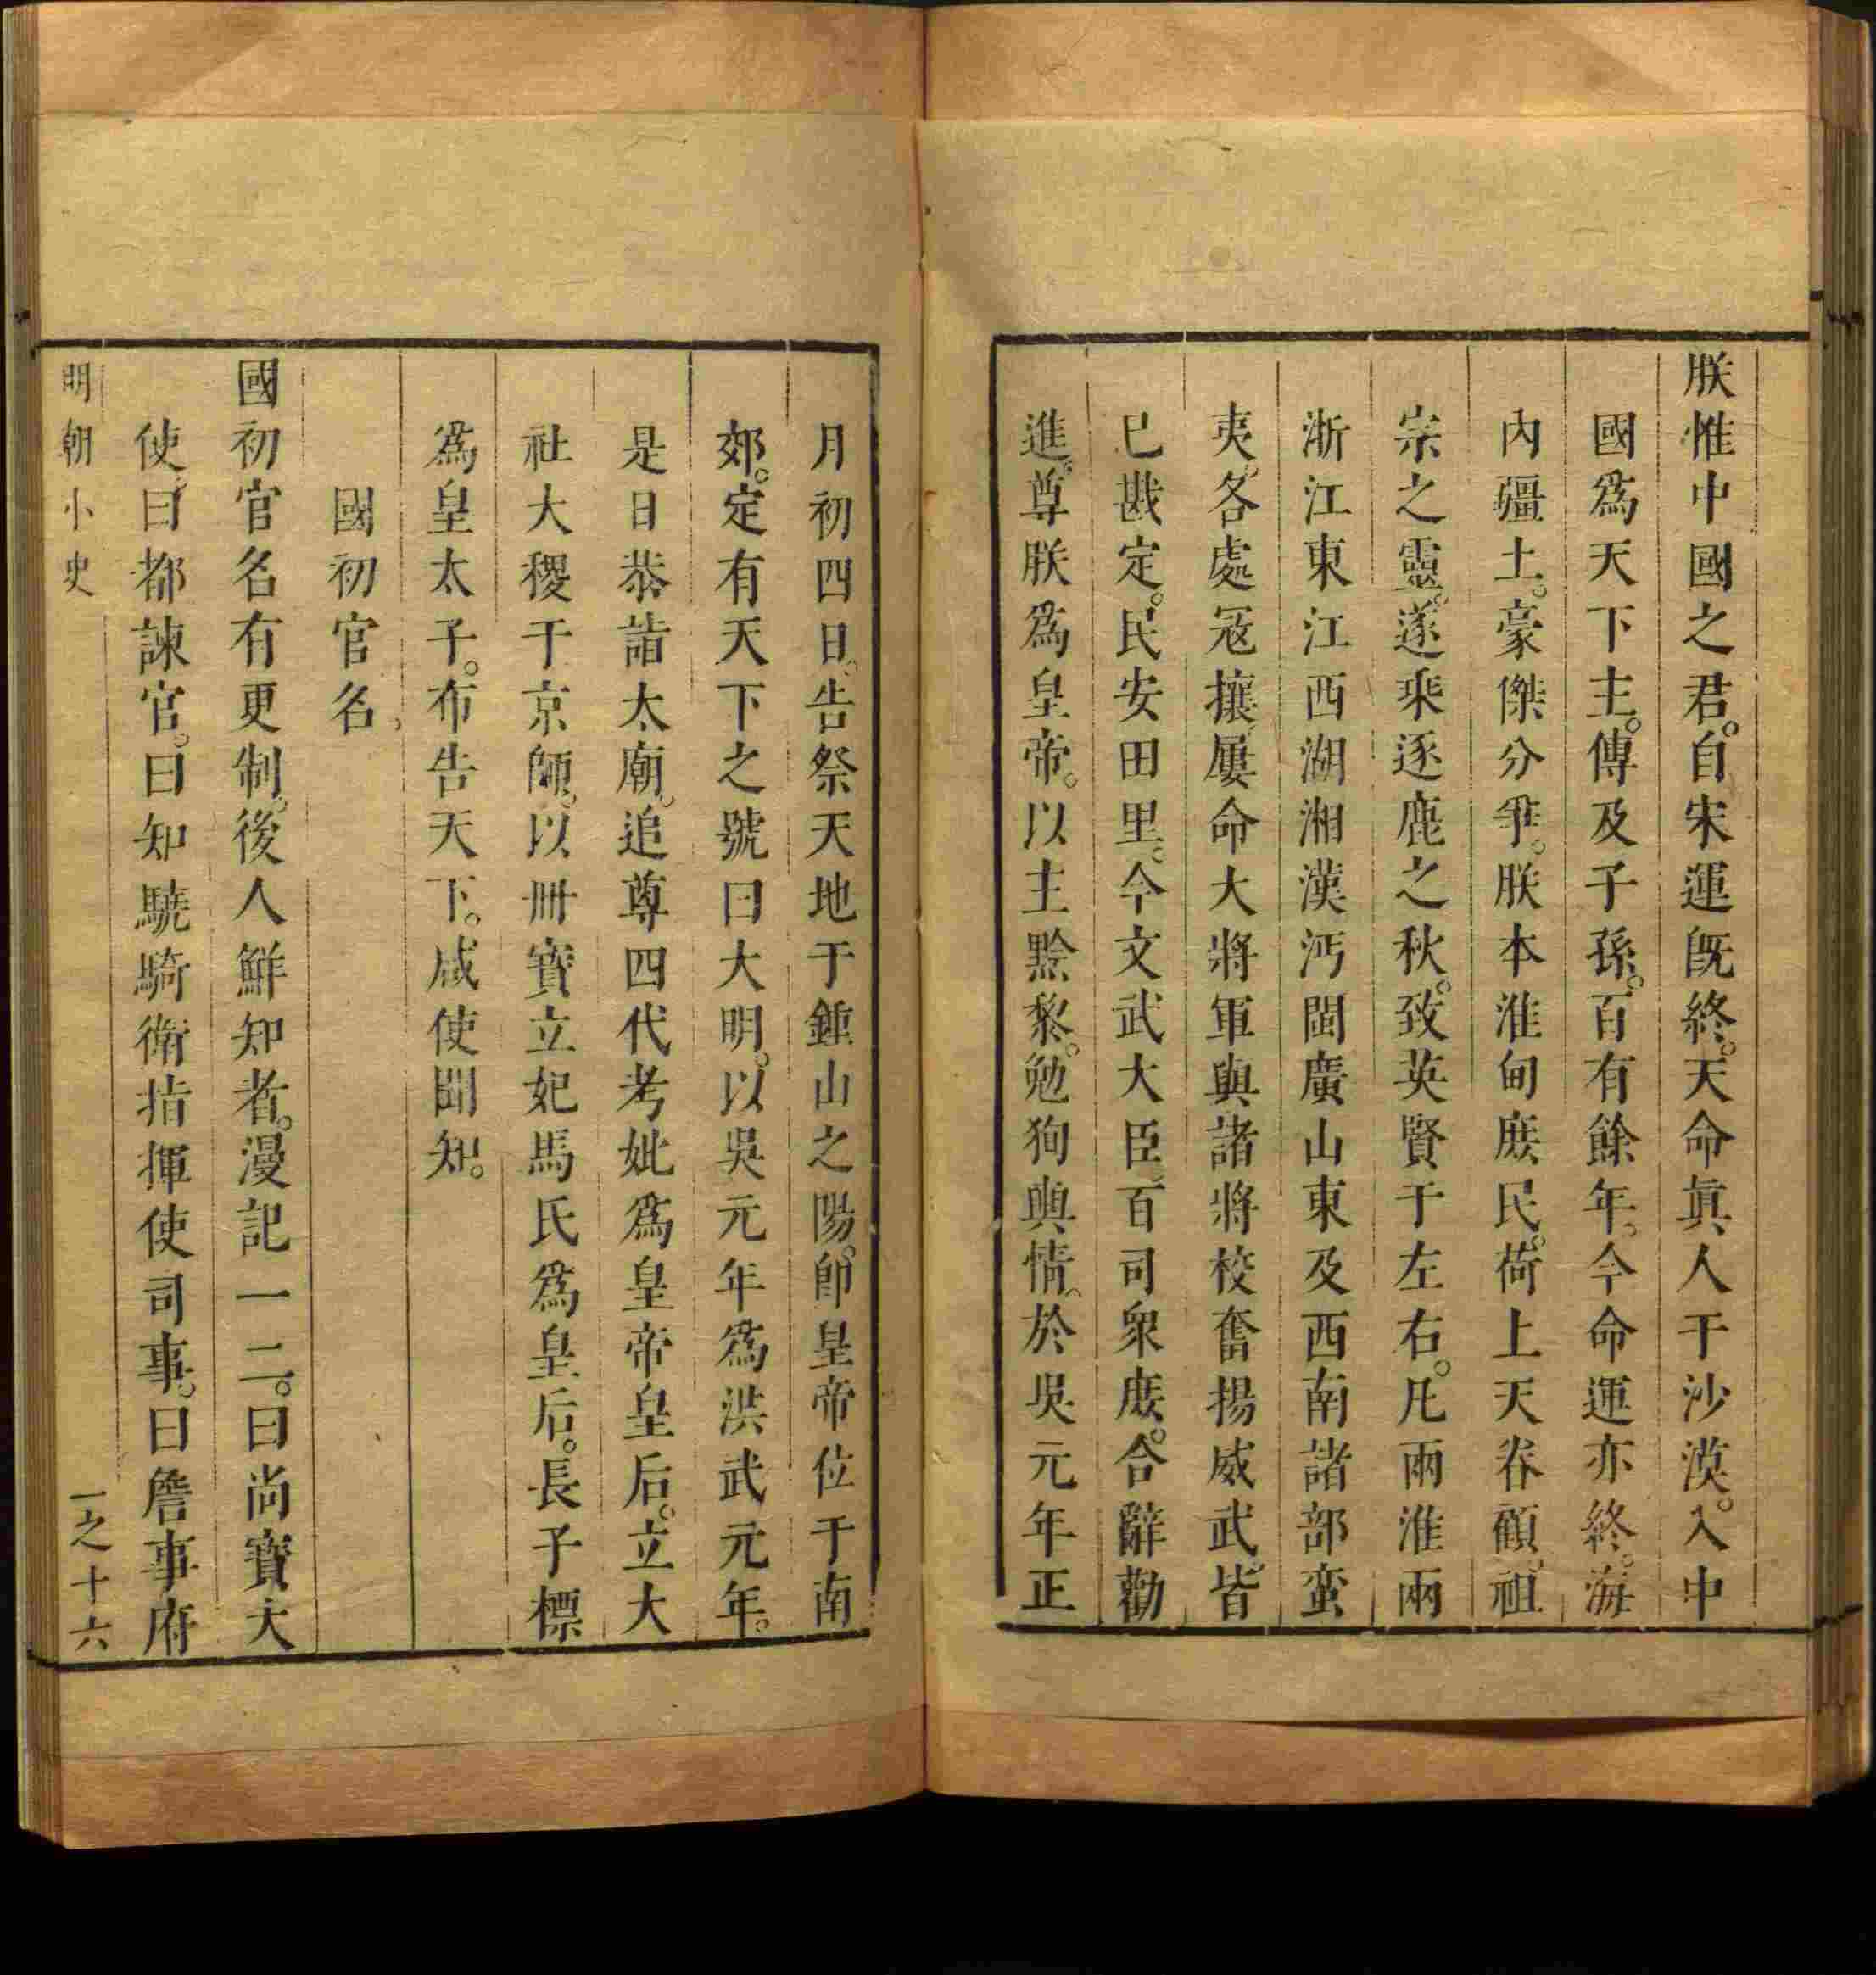 朕惟中國之君。自宋運旣終。天命眞人于沙漠。入中
國爲天下主。傳及子孫。百有餘年。今命運亦終。海
內疆土。豪傑分爭。朕本淮甸庶民。荷上天眷顧。祖
宗之靈。遂乘逐鹿之秋。致英賢于左右。凡兩淮兩
浙江東江西湖湘漢沔閩廣山東及西南諸部蠻
夷。各處寇攘。屢命大將軍與諸將校奮揚威武。皆
已戡定。民安田里。今文武大臣。百司衆庶。合辭勸
進。尊朕爲皇帝。以主黔黎。勉狥輿情。於吳元年正
月初四日。告祭天地于鍾山之陽。卽皇帝位于南
郊。定有天下之號曰大明。以吳元年爲洪武元年。
是日恭詣太廟。追尊四代考妣爲皇帝皇后。立大
社大稷于京師。以冊寶立妃馬氏爲皇后。長子標
爲皇太子。布告天下。咸使聞知。
國初官名
國初官名有更制。後人鮮知者。漫記一二。曰尚寶大
使。曰都諫官。曰知驍騎衛指揮使司事。曰詹事府
明朝小史
一之十六